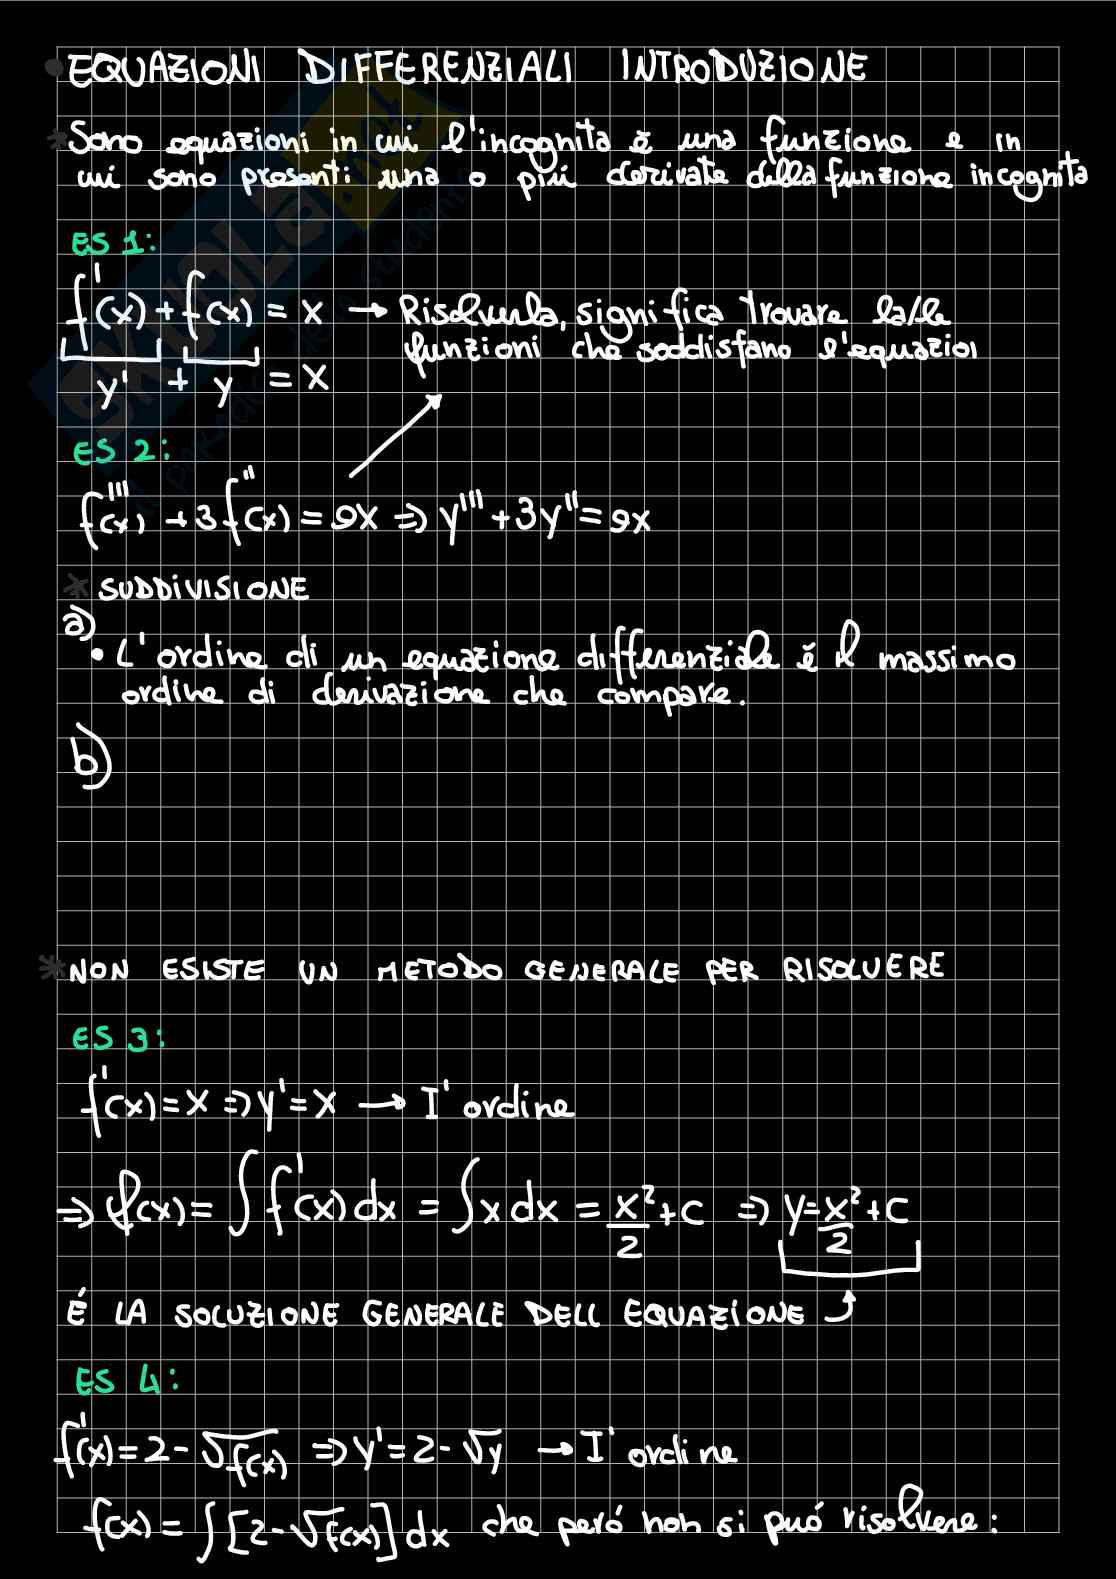 • EQUAZIONI DIFFERENZIALI INTRODUZIONE
* Sono equazioni in cui l'incognita è una funzione e in
cui sono presenti una o più derivate della funzione incognita
ES 1:
f'(x) + f(x) = x → Risolverla, significa trovare la/le
funzioni che soddisfano l'equazioi
y' + y = x
ES 2:
f'''(x) + 3f''(x) = 9x ⇒ y''' + 3y'' = 9x
* SUDDIVISIONE
a)
• L'ordine di un equazione differenziale é il massimo
ordine di derivazione che compare.
b)
* NON ESISTE UN METODO GENERALE PER RISOLVERE
ES 3:
f'(x) = x ⇒ y' = x → I' ordine
⇒ f(x) = ∫ f'(x) dx = ∫ x dx = x²/2 + c ⇒ y = x²/2 + c
É LA SOLUZIONE GENERALE DELL EQUAZIONE
ES 4:
f'(x) = 2 - √f(x) ⇒ y' = 2 - √y → I' ordine
f(x) = ∫ [2 - √f(x)] dx che peró non si puó risolvere:
SKUOLA.net
il paradiso dello studente